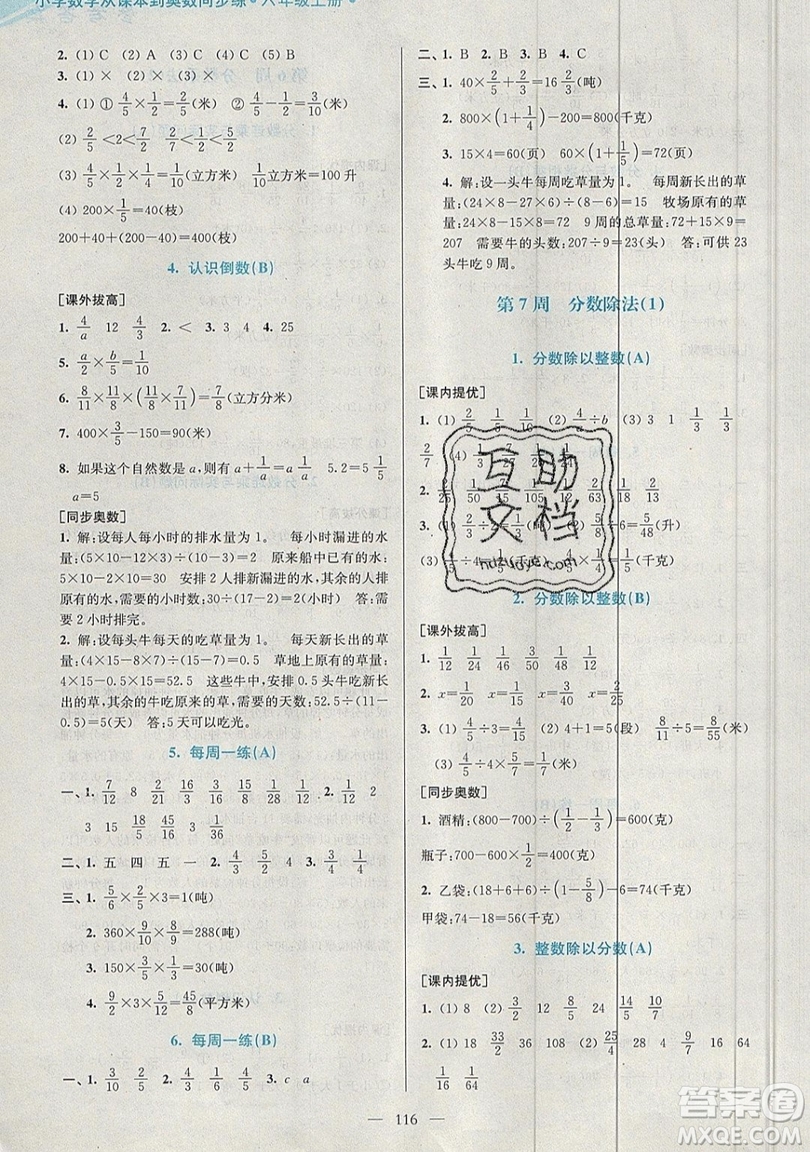 小学数学从课本到奥数同步练·六年级上册·
2. (1)√ (2)√ (3)√
3. (1)× (2)× (3)×
4. (1) ① 4/5×1/2=2/5(米) ② 4/5-1/2=3/10(米)
(2) 2/5<2<2/7 2/7<1/2<2/5
(3) 1/5×1/2=1/10(立方分米) 1/10立方米=100升
(4) 200×1/5=40(枝)
200+40+(200-40)=400(枝)
4. 认识倒数(B)
[课外拔高]
1. 4/a 12 4/3 2. < 3. 3 4 4. 25
5. 2/a×b/5=1/10
6. 8/11×8/11×(11/8×7/11)=8/11×7/11
7. 400×3/5-150=90(米)
8. 如果这个自然数是a,则有a+1/a=a1/a 5.2=5 1/5
a=5
[同步奥数]
1. 解:设每人每小时的排水量为1。 每小时漏进的水
量:(5×10-12×3)÷(10-3)=2 原来船中已有的水:
(5×10)-(2×10)=30 安排2人排新漏进的水,其余的人排
原来的水,需要的小时数:30÷(17-2)=2(小时) 答:需
要2小时排完。
2. 解:设每头牛每天的吃草量为1。 每天新长出的草
量:(4×15-8×7)÷(15-7)=0.5 草地上的原有草量:
4×15-0.5×15=52.5 这些牛中,安排0.5头牛吃新长
出的草,其余的牛吃原来的草,需要的天数:52.5÷(11-
0.5)=5(天) 答:5天可以吃光。
5. 每周一练(A)
一、1. 7/12 8 2/21 16/3 3/16 15/8 1/28 1/12 2. 1/2
3 15 18/5 45/16 3 1/36
二、1. 五 四 五 一 2. 4/3 5/2 4 3. 1/4 3/4
三、1. 5/6×2/5×3=1(吨)
2. 360×9/10×8/9=288(吨)
3. 10×3/5×1/3=2(吨)
4. 3/2×3×5/4=45/8(平方米)
6. 每周一练(B)
一、1. 3/10 2/5 2. 4/3 4/5 3. c a
二、1. B 2. A 3. B
三、1. 40×2/5+2/3=16 2/3(吨)
2. 800×(1+1/4)-200=800(千克)
3. 15×4=60(页) 60×(1+1/5)=72(页)
4. 解:设一头牛每周吃草量为1。 每周新长出的草
量:(24×8-27×6)÷(8-6)=15 牧场原有的草量:
24×8-15×8=72 9周的总草量:72+15×9=
207 需要牛的头数:207÷9=23(头) 答:可供23
头牛吃9周。
第7周 分数除法(1)
1. 分数除以整数(A)
[课内提优]
2. 分数除以整数(B)
[课外拔高]
1. 1/12 1/24 4/46 5/48 1/50 3/52
2. x=1/20 x=1/15 x=3/40 x=1/24
3. (1) 4/5÷3=4/15(米) (2) 4+1=5(段) 8/11÷5=8/55(米)
(3) 4/5÷4×5/7=1/7(千米)
[同步奥数]
1. 酒精:(800-700)÷(1/2-1/3)=600(克)
瓶子:700-600×1/2=400(克)
2. 乙袋:(18+6+6)÷(1-5/8)-6=74(千克)
甲袋:74-18=56(千克)
3. 整数除以分数(A)
[课内提优]
1. (1) 8 (2) 3/2 12 8/5 24 14/5 15/4
2. (1) 18 33/2 36 108 (2) 25/4 28 4 9/7 16 64
1/16 1/64
— 116 —
互助
文档
huzuoye.com
答案圈
MXQE.COM